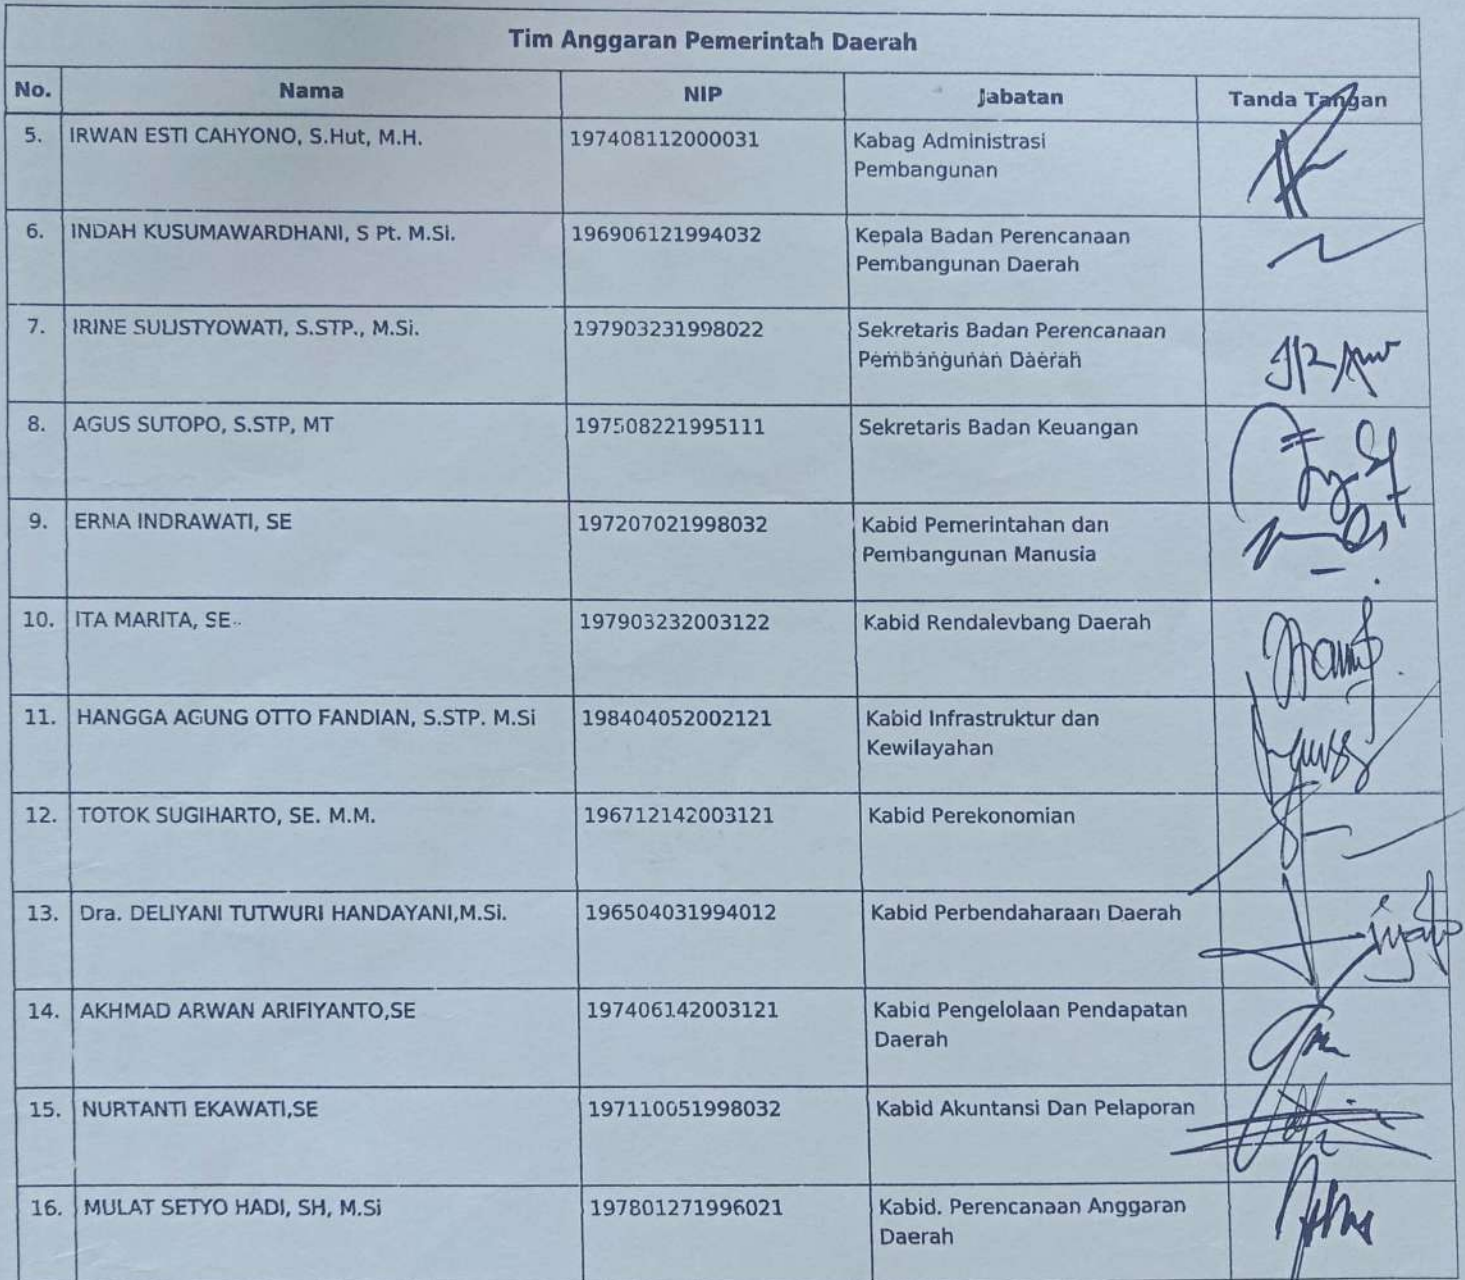 Tim Anggaran Pemerintah Daerah
No. Nama NIP Jabatan Tanda Tangan
5. IRWAN ESTI CAHYONO, S.Hut, M.H. 197408112000031 Kabag Administrasi
Pembangunan
6. INDAH KUSUMAWARDHANI, S Pt. M.Si. 196906121994032 Kepala Badan Perencanaan
Pembangunan Daerah
7. IRINE SULISTYOWATI, S.STP., M.Si. 197903231998022 Sekretaris Badan Perencanaan
Pembangunan Daerah
8. AGUS SUTOPO, S.STP, MT 197508221995111 Sekretaris Badan Keuangan
9. ERNA INDRAWATI, SE 197207021998032 Kabid Pemerintahan dan
Pembangunan Manusia
10. ITA MARITA, SE 197903232003122 Kabid Rendalevbang Daerah
11. HANGGA AGUNG OTTO FANDIAN, S.STP. M.Si 198404052002121 Kabid Infrastruktur dan
Kewilayahan
12. TOTOK SUGIHARTO, SE. M.M. 196712142003121 Kabid Perekonomian
13. Dra. DELIYANI TUTWURI HANDAYANI,M.Si. 196504031994012 Kabid Perbendaharaan Daerah
14. AKHMAD ARWAN ARIFIYANTO,SE 197406142003121 Kabid Pengelolaan Pendapatan
Daerah
15. NURTANTI EKAWATI,SE 197110051998032 Kabid Akuntansi Dan Pelaporan
16. MULAT SETYO HADI, SH, M.Si 197801271996021 Kabid. Perencanaan Anggaran
Daerah